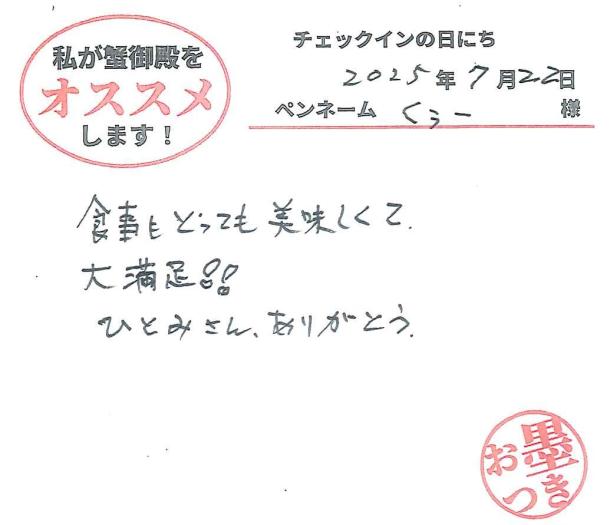 私が蟹御殿を
オススメ
します！
チェックインの日にち
2025年7月22日
ペンネーム くぅー 様
食事もとっても美味しくて、
大満足!!
ひとみさん、ありがとう。
お墨
つき